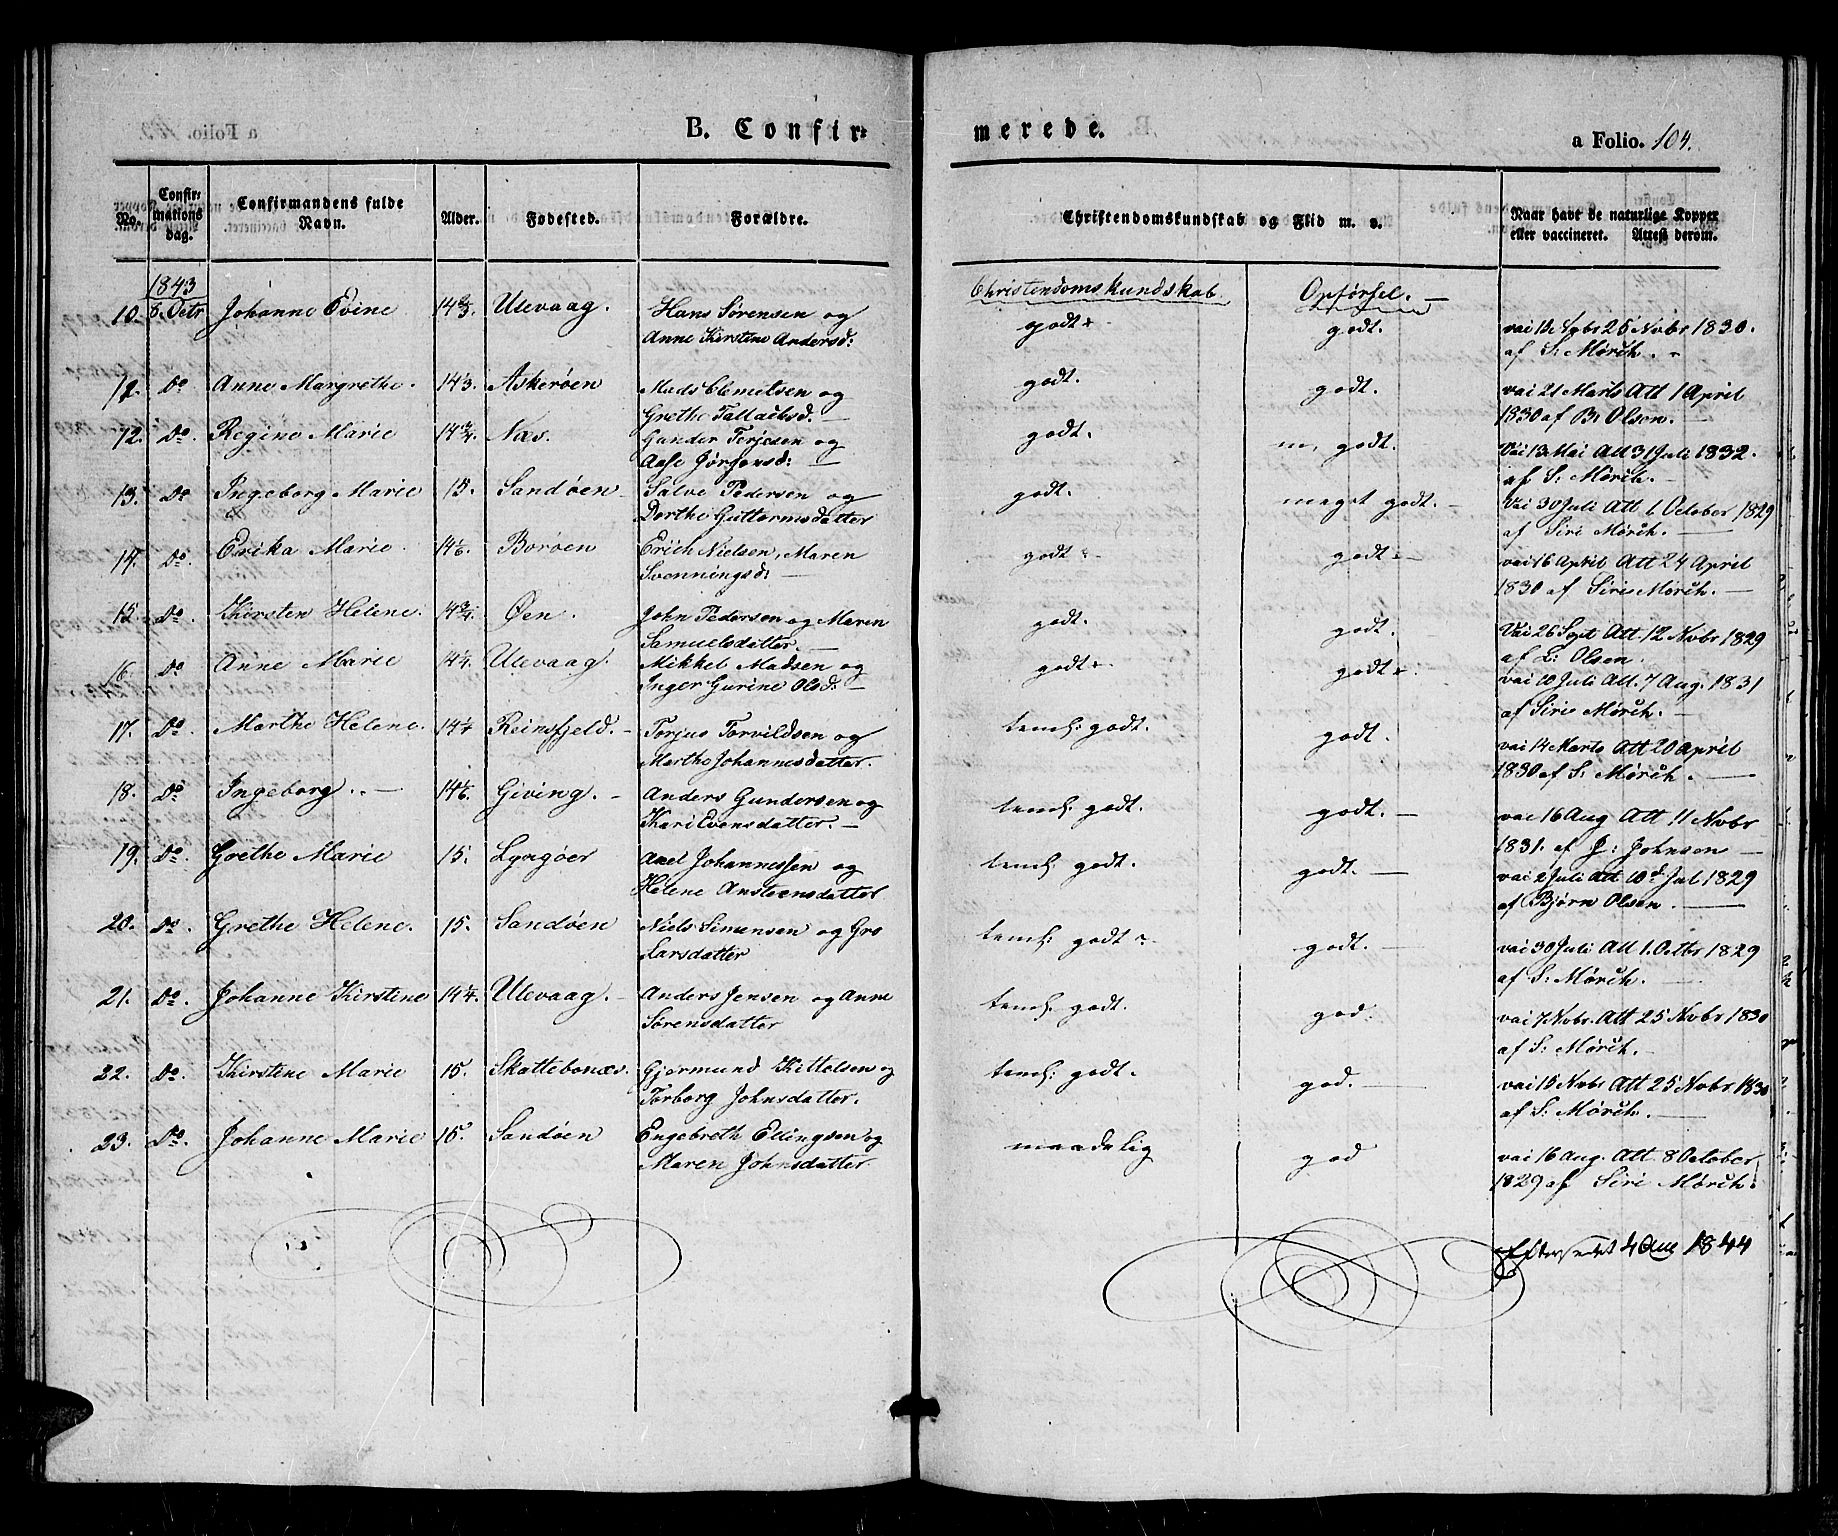 B. Confir=
merede.
a Folio. 104.
No.
Confir=
mations
dag.
Confirmandens fulde
Navn.
Alder.
Fødested.
Forældre.
Christendomskundskab og Flid m. v.
Naar havt de naturlige Kopper
eller vaccineret. Attest derom.
1843
Christendomskundskab.
Opførsel. —
10. 8. Octr Johanne Evine 14¾. Ulevaag. Hans Sørensen og
Anne Kirstine Andersd:
godt
godt.
25 Novbr 1830.
af S: Mørch.
Do Anne Margrethe. 14 Askerøen Mads Clemetsen og
Grethe Tallaksd: —
godt.
godt.
vai 21 Marts Att 1 April
1830 af B: Olsen. —
12. Do. Regine Marie 14¾. Næs. Gunder Terjesen og
Aase Jørgensd: —
godt.
m, godt.
Vai 13 Mai Att 31 Juli 1832.
af S. Mørch. —
13. Do Ingeborg Marie 15. Sandøen Salve Pedersen og
Dorthe Guttormsdatter
godt.
meget godt. —
Vai 30 Juli Att 1. October 1829
af Siri Mørch. —
14. Do. Erika Marie. 14⅙. Borøen Erich Nielsen, Maren
Svenningsd: —
godt
godt —
vai 16 April Att 24 April
1830 af Siri Mørch. —
15. Do. Kirsten Helene. 14¾. Øen. John Pedersen og Maren
Samuelsdatter. —
godt.
godt.
Vai 26 Sept Att 12 Novbr 1829
af B: Olsen.
16. Do Anne Marie 14¼. Ulevaag. Mikkel Madsen og
Inger Gurine Olsd: —
godt
godt
vai 10 Juli Att. 7 Aug. 1831
af Siri Mørch. —
17. Do. Marthe Helene. 14¼ Reinsfjeld. — Torjus Torvildsen og
Marthe Johannesdatter.
teml: godt.
godt.
vai 14 Marts Att 20 April
1830 af S: Mørch. —
18. Do. Ingeborg. — 14⅙. Giving. — Anders Gundersen og
Kari Evensdatter. —
teml: godt.
godt. —
vai 16 Aug Att 11 Novbr
1831. af J: Johnsen —
19. Do. Grethe Marie 15. Lyngøer Axel Johannessen og
Helene Anstensdatter
teml: godt.
godt. —
vai 2 Juli Att 10d Jul 1829
af Bjørn Olsen. —
20. Do. Grethe Helene. 15. Sandøen Niels Simensen og Gro
Larsdatter
teml: godt
godt. —
vai 30 Juli Att 1. Octbr 1829
af S: Mørch. —
21. Do. Johanne Kirstine 14¼. Ulevaag. — Anders Jensen og Anne
Sørensdatter
teml. godt.
god.
vai 7 Nobr. Att 25 Novbr 1830
af S: Mørch. —
22. Do. Kirstine Marie 15. Skattebonæs. Gjermund Kittelsen og
Torborg Johnsdatter.
teml: godt.
god. —
vai 15 Novbr Att 25 Novbr 1830
af S: Mørch. —
23. Do. Johanne Marie 15. Sandøen Engebreth Ellingsen og
Maren Johnsdatter
maadelig
god
vai 16 Aug. Att 8 October
1829 af Siri Mørch.
Efterseet 1844